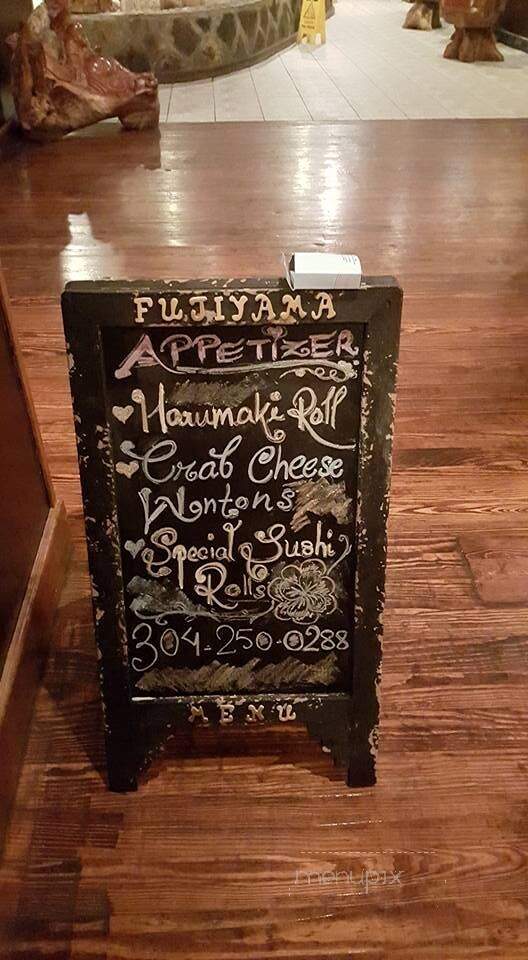 FUJIYAMA
APPETIZER
Harumaki Roll
Crab Cheese
Wntons
Special Sushi
Rolls
304-250-0288
MENU
menupix